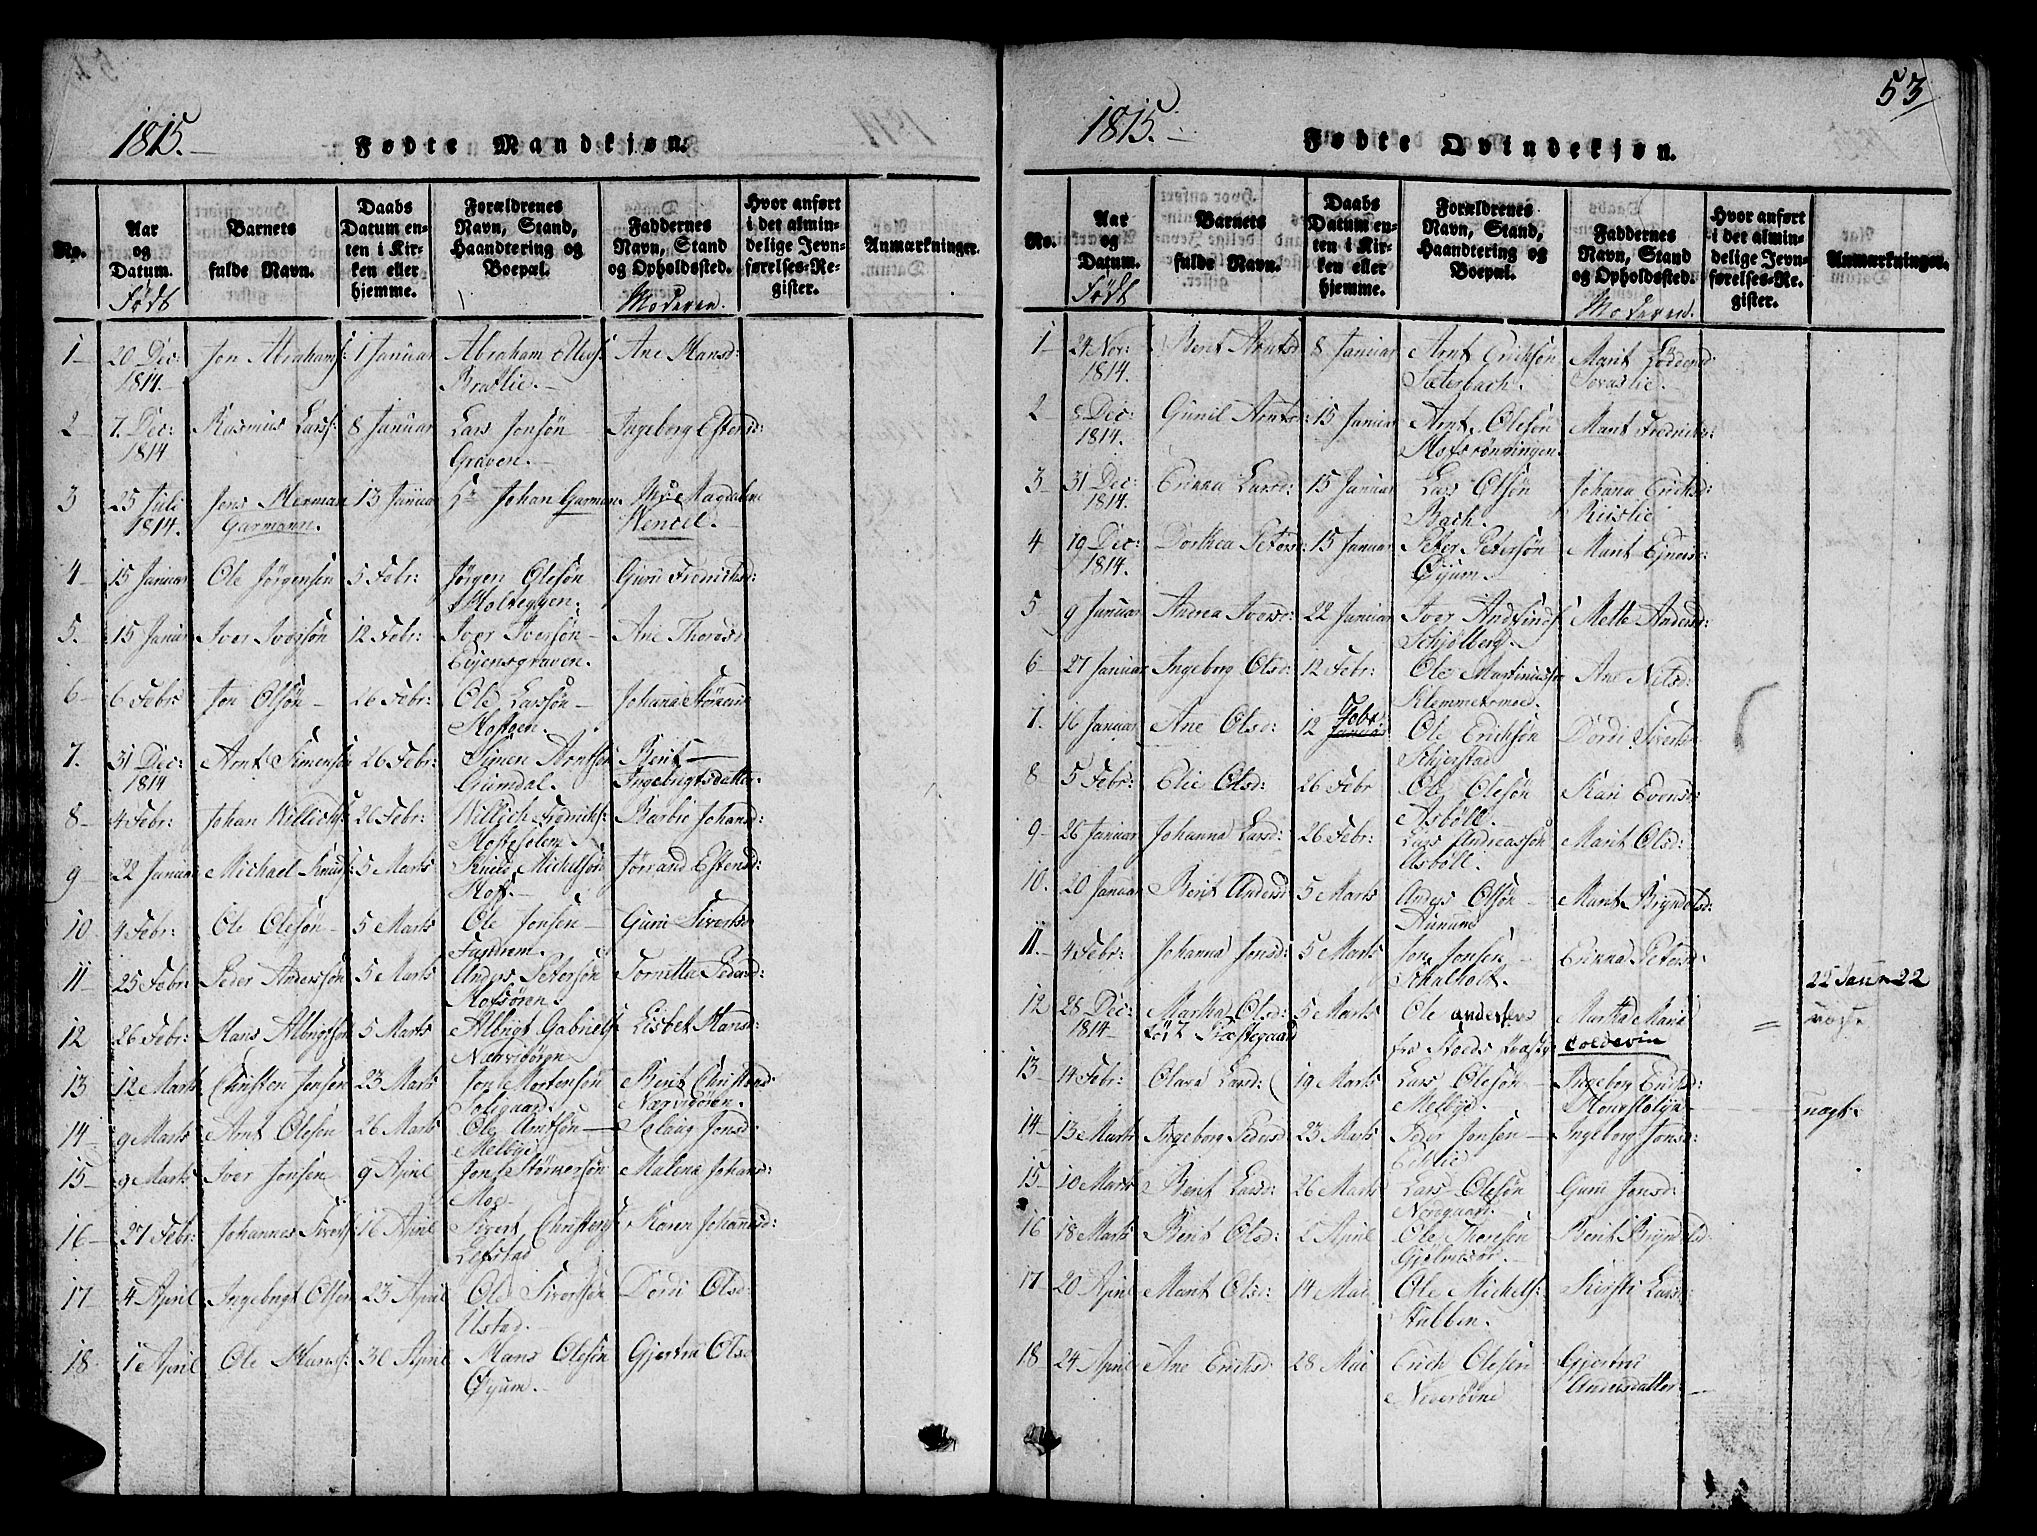 53
1815.
Fødte Mandkjøn.
No.
Aar og Datum.
Født
Barnets fulde Navn.
Daabs Datum enten i Kirken eller hjemme.
Forældrenes Navn, Stand, Haandtering og Boepæl.
Faddernes Navn, Stand og Opholdssted.
Moderen.
Hvor anført i det almindelige Jevnførelses-Register.
Anmærkninger.
1 20 Dec: 1814. Jon Abrahams: 1 Januar Abraham Olles: Bratlie. Ane Hansd:
2 7 Dec: 1814 Rasmus Lars: 8 Januar Lars Jonsøn Graven. Ingeborg Estensd:
3 25 Juli 1814. Jens Herman Garmann. 13 Januar Hr Johan Garman. Magdalene Wencel.
4 15 Januar Ole Jørgensen 5 Febr: Jørgen Olesøn Holteggen. Guru Fredrichsd:
5. 15 Januar Iver Iversøn 12 Febr: Iver Iversøn Eijensgraven. Ane Thorsd:
6 6 Febr: Jon Olsøn 26 Febr: Ole Larssøn Hoftoen. Johanna
7. 31 Dec: 1814 Arnt Simensøn 26 Febr: Simen Arntsøn Gumdal. Berit Ingebrigtsdatter
8 4 Febr: Johan Willichs: 26 Febr: Willich Fredrichs: Barbro Johansd:
9 22 Januar Michael Knuds: 5 Marts Knud Michelsøn Hof. Jørrand Estensd:
10 4 Febr: Ole Olesøn 5 Marts Ole Jonsen Fandrem. Guru Sivertsd:
11 25 Febr: Peder Anderssøn 5 Marts Anders Petersøn Hofsøren. Tornetta Pedersd:
12 26 Febr: Hans Albrigtsøn 5 Marts Albrigt Gabriels: Nærvigøren Lisbet Hansd:
13 12 Marts Christen Jonsen 23 Marts Jon Mortensøn Solsgaard. Berit Christensd: Nærvidøren.
14 9 Marts Arnt Olesen 26 Marts Ole Arntsøn Melbye. Solaug Jonsd:
15 9 Marts Iver Jonsen 9 April Jon Størkersøn Moe Malena Johansd:
16 27 Febr: Johannes Sivers: 16 April Sivert Christens: Lefstad Karen Johannesd:
17 4 April Ingebrigt Olsen 23 April Ole Siversøn Ustad. Dordi Olsd:
18 1 April Ole Hans: 30 April Hans Olesen Øyum. Gjertru Olsd:
1815.
Fødte Qvindekjøn.
No.
Aar og Datum.
Født
Barnets fulde Navn.
Daabs Datum enten i Kirken eller hjemme.
Forældrenes Navn, Stand, Haandtering og Boepæl.
Faddernes Navn, Stand og Opholdssted.
Moderen.
Hvor anført i det almindelige Jevnførelses-Register.
Anmærkninger.
1 24 Nov: 1814. Berit Arntsd: 8 Januar Arnt Erichsøn Sæterbach. Marit
2 8 Dec: 1814. Gunil Arntsd: 15 Januar Arnt Olesøn Hofsrønningen Marit Fredrichsd:
3 31 Dec: 1814. Erikka Larsd: 15 Januar Lars Olsøn Bach. Johanna Erichsd:
4 19 Dec: 1814. Dorthea Petersd: 15 Januar Peter Petersøn Øyum. Marit Ejnersd:
5 9 Januar Andrea Iversd: 22 Januar Iver Andfinds: Schjølberg. Mette Andersd:
6 27 Januar Ingeborg Olsd: 12 Febr: Ole Martinussøn Klemmetsmoe. Ane Nilsd:
7. 16 Januar Ane Olsd: 12 Febr: Januar Ole Erichsøn Schjerstad Dordi Sivertsd:
8 5 Febr: Elie Olsd: 26 Febr Ole Olesøn Asbøll. Kari Evensd:
9 26 Januar Johanna Larsd: 26 Febr: Lars Andreassøn Asbøll. Marit Olsd:
10. 20 Januar Berit Andersd: 5 Marts Anders Olsøn Aunund Marit Brynilds:
11. 4 Febr: Johanna Jonsd: 5 Marts Jon Jonsen Skalholt. Erikka Petersd:
12 28 Dec: 1814 Martha Olsd: født Præstegaard 5 Marts Ole Andersen fra Stoeds Præstg: Martha Maria Coldevin
22 Jan 22
13 14 Febr: Olava Larsd: 19 Marts Lars Olesøn Melbye. Ingeborg Erichsd:
14 13 Marts Ingeborg Pedersd 23 Marts Peder Jonsen Eidlie Ingeborg Jonsd:
15 10 Marts Berit Larsd: 26 Marts Lars Olesøn Nordgaard. Guru Jonsd:
16 18 Marts Berit Olsd: 2 April Ole Thoresen Gjølmesør. Berit Brynildsd:
17 20 April Marit Olsd: 14 Mai Ole Michels: Stubben. Kirsti Larsd:
18 24 April Ane Erichsd: 28 Mai Erich Olesen Nederøvne Gjertru Andersdatter